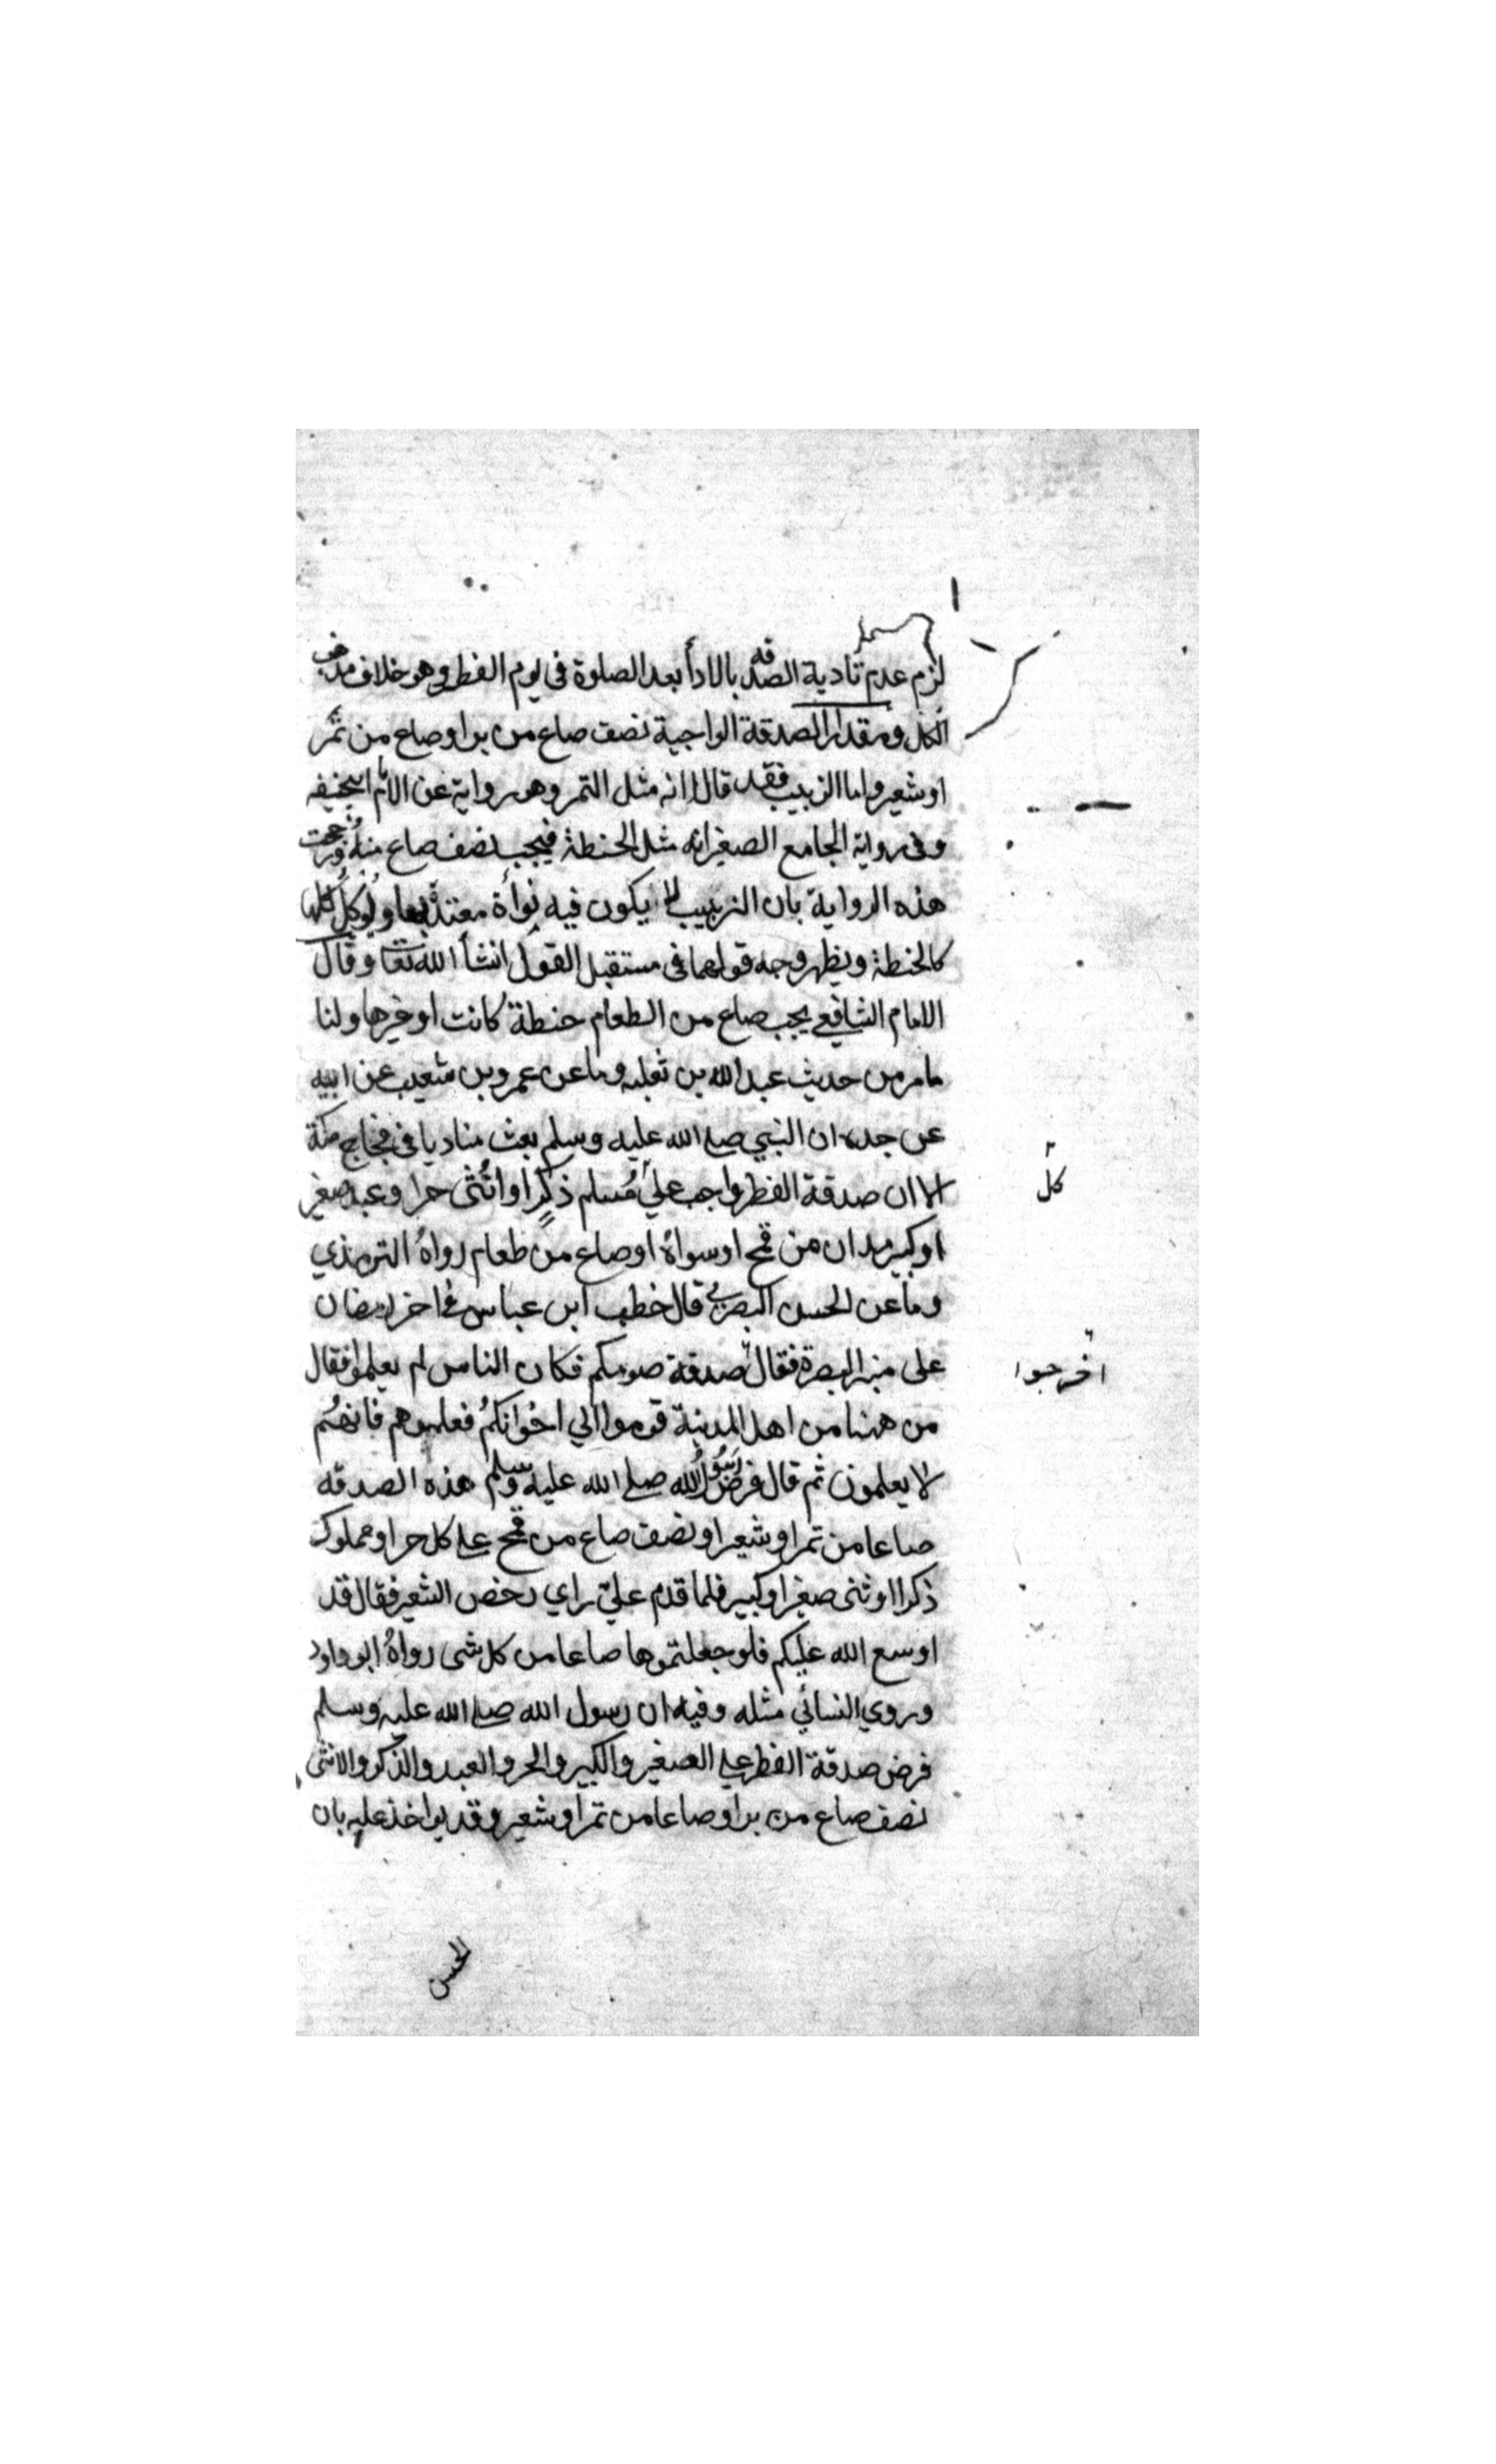 لزم عدم تادية الصدقه بالادأ بعد الصلوة فى يوم الفطر وهو خلاف مذهب
الكل ومقدار الصدقة الواجبة نصف صاع من بر او صاع من تمر
او شعير واما الزبيب فقد قالا انه مثل التمر وهو رواية عن الامام ابيحنيفه
وفى رواية الجامع الصغير انه مثل الحنطة فيجب نصف صاع منه ورجحت
هذه الرواية بان الزبيب لا يكون فيه نواة معتدة بها ويوكل كلها
كالحنطة ويظهر وجه قولهما فى مستقبل القول انشأ الله تعا وقال
الامام الشافعي يجب صاع من الطعام حنطة كانت او غيرها ولنا
مامر من حديث عبد الله بن ثعلبه وما عن عمرو بن شعيب عن ابيه
عن جده ان النبي صلى الله عليه وسلم بعث مناديا فى فجاج مكة
الا ان صدقة الفطر واجب على مسلم ذكرا او انثى حرا وعبد صغير
كل
او كبير مدان من قمح او سواه او صاع من طعام رواه الترمذي
وما عن الحسن البصري قال خطب ابن عباس فى اخر رمضان
على منبر البصرة فقال صدقة صومكم فكان الناس لم يعلموا فقال
اخرجوا
من ههنا من اهل المدينة قوموا الي اخوانكم فعلموهم فانهم
لا يعلمون ثم قال فرض رسول الله صلى الله عليه وسلم هذه الصدقه
صاعا من تمر او شعير او نصف صاع من قمح على كل حر او مملوك
ذكر او انثى صغير او كبير فلما قدم علي راي رخص الشعير فقال قد
اوسع الله عليكم فلو جعلتموها صاعا من كل شى رواه ابو داود
وروي النسائي مثله وفيه ان رسول الله صلى الله عليه وسلم
فرض صدقة الفطر على الصغير والكبير والحر والعبد والذكر والانثى
نصف صاع من بر او صاعا من تمر او شعير وقد يواخذ عليه بان
الحسن